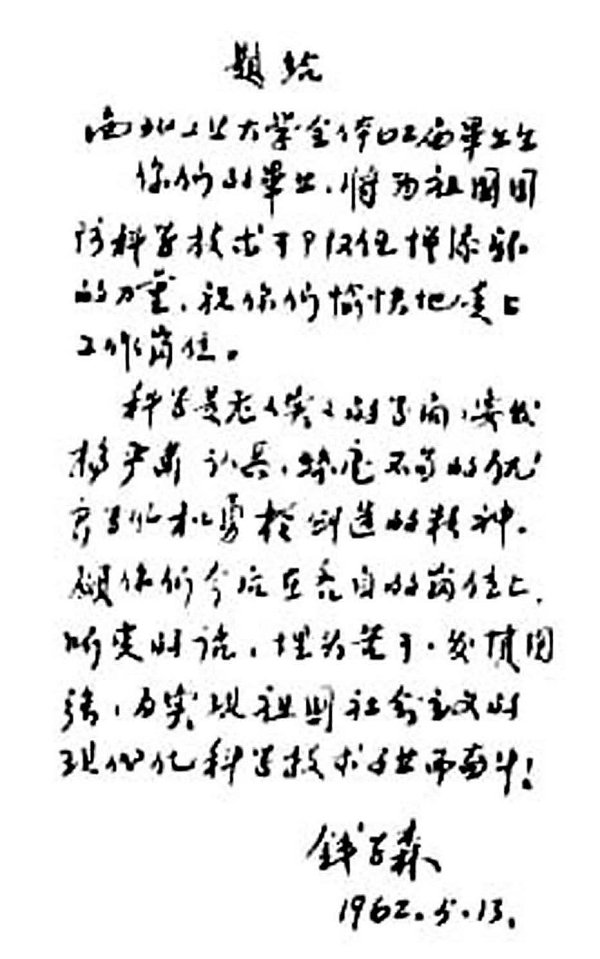 题给
西北工业大学全体62届畢业生
你们的畢业，将为祖国国
防科学技术干部队伍增添新
的力量，祝你们愉快地走上
工作岗位。
科学是老々实々的学问，要发
扬严肃认真，丝毫不苟的优
良学风和勇於创造的精神。
願你们今后在各自的岗位上，
听党的话，埋头苦干，发愤图
强，为实现祖国社会主义的
现代化科学技术事业而奋斗！
钱学森
1962.5.13.